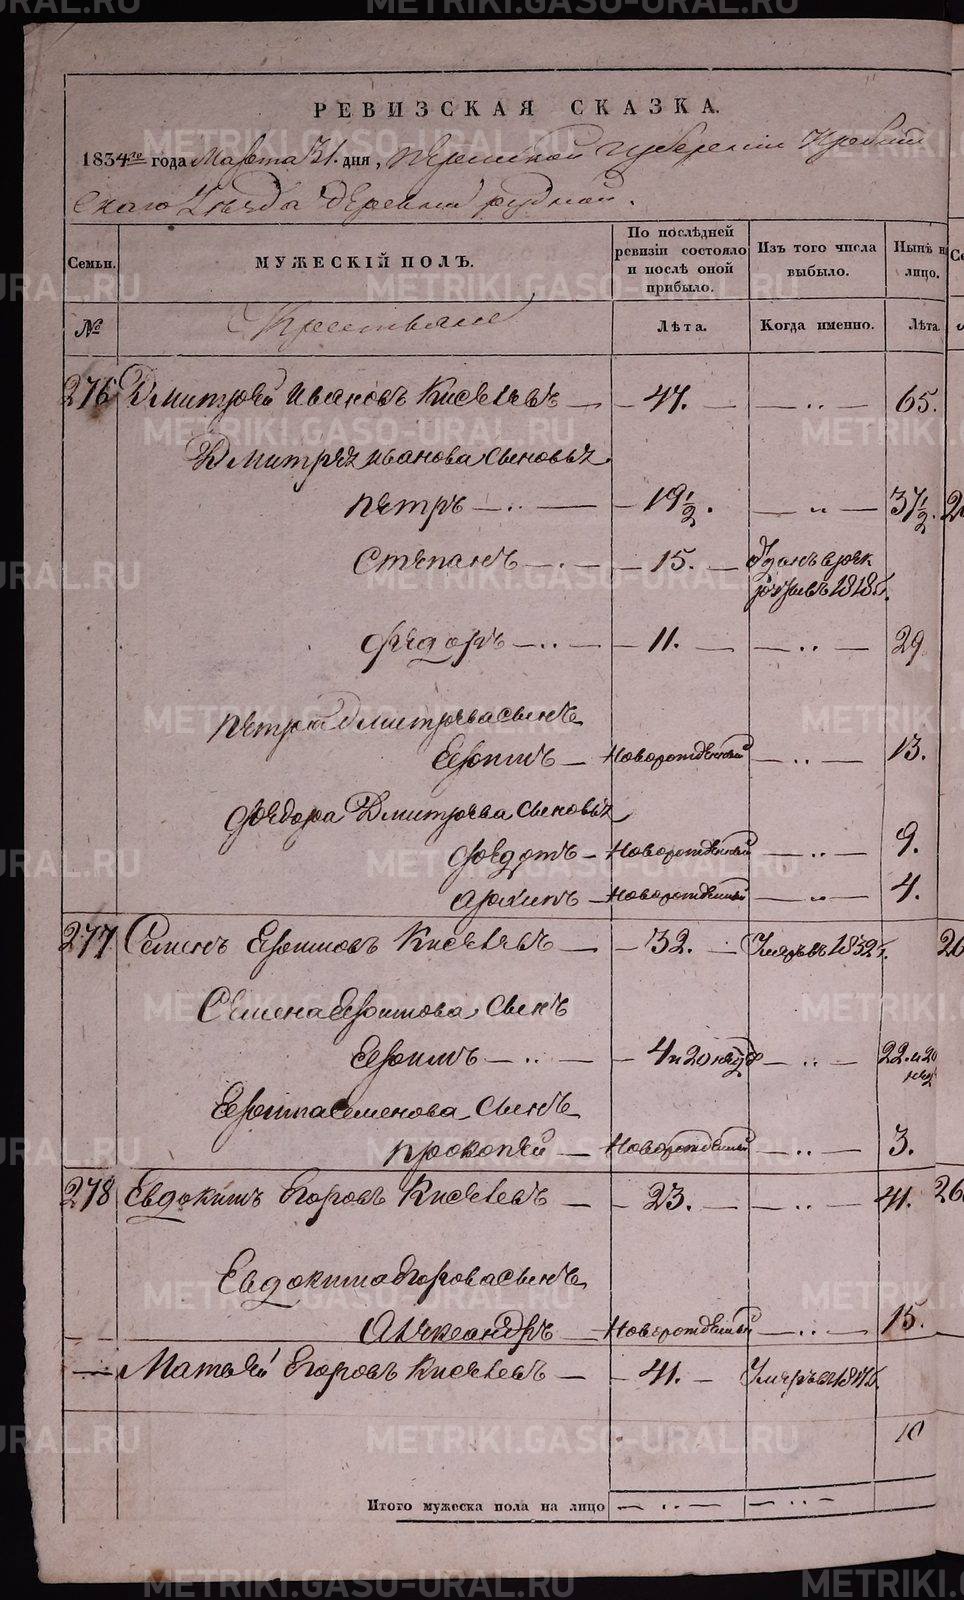 РЕВИЗСКАЯ СКАЗКА.
1834го года Марта 31. дня, Пермской губерніи Ирбит
скаго Уезда деревни рудной.
Семьи. МУЖЕСКІЙ ПОЛЪ. По послѣдней ревизіи состояло и послѣ оной прибыло. Изъ того числа выбыло. Нынѣ на лицо.
№ Крестьяне Лѣта. Когда именно. Лѣта.
276 Дмитрей Ивановъ Киселевъ — 47. — — „ — 65.
Дмитрея иванова сыновья
петръ — „ — 19 1/2. — „ — 37 1/2.
Степанъ — „ — 15. — Зданъ врек
рутывъ 1818г.
Федоръ — „ — 11. — — „ — 29
петра Дмитрева сынъ
Ефимъ — Новорожденный — „ — 13.
Федора Дмитрева сыновья
Федотъ — Новорожденный — „ — 9.
архипъ — Новорожденный — „ — 4.
277 Семенъ Ефимовъ Киселевъ — 32. — Умеръвъ 1832г.
Семена Ефимова сынъ
Ефимъ — „ — 4 и 20 нед — „ — 22. и 20
нед
Ефима Семенова сынъ
прокопей — Новорожденный — „ — 3.
278 Евдокимъ Егоровъ Киселевъ — 23. — — „ — 41.
Евдокима Егорова сынъ
Александръ — Новорожденный — „ — 15.
— Матвей Егоровъ Киселевъ — 41. —
10
Итого мужеска пола на лицо — „ — — „ —
METRIKI.GASO-URAL.RU